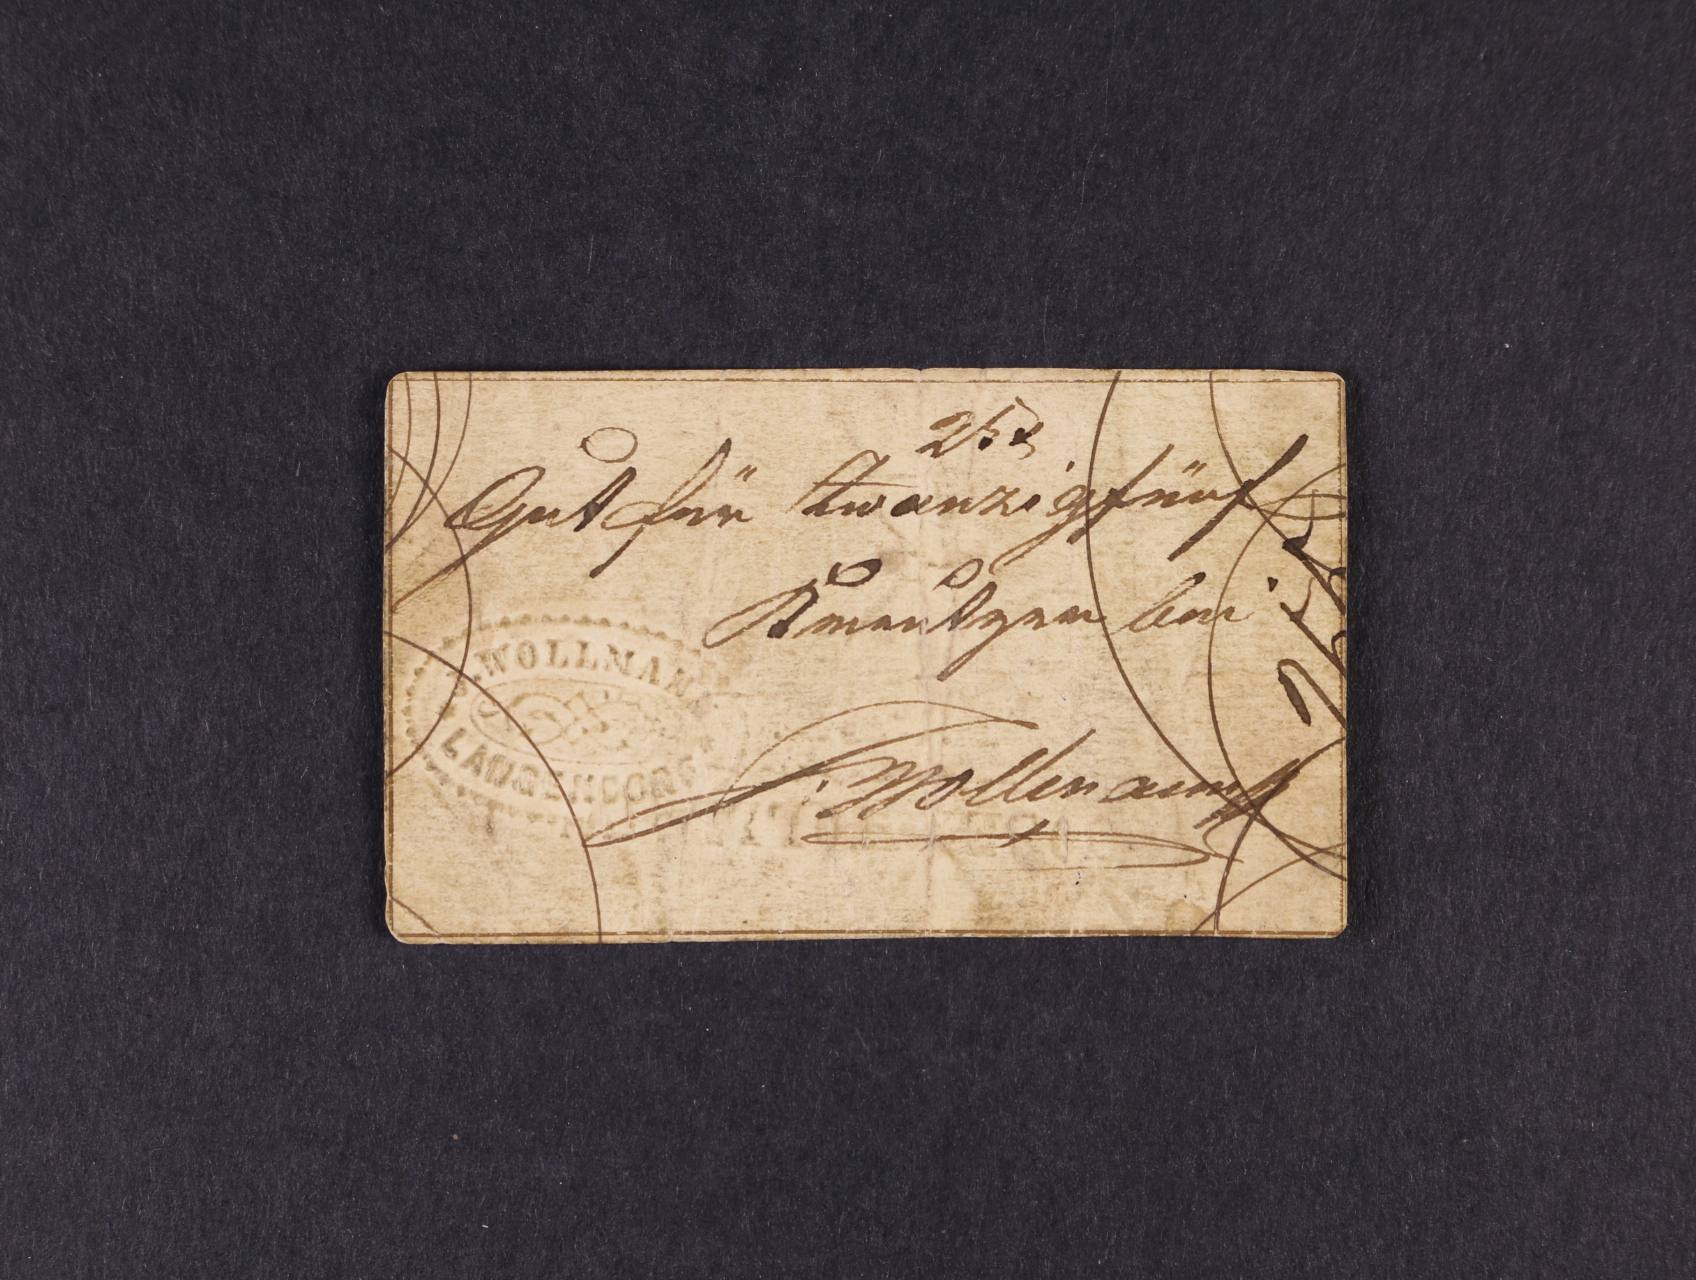 25x
Gut für Zwanzigfünf
Kreutzer bei
J. Wollmann
J. WOLLMANN
LANGENDORF